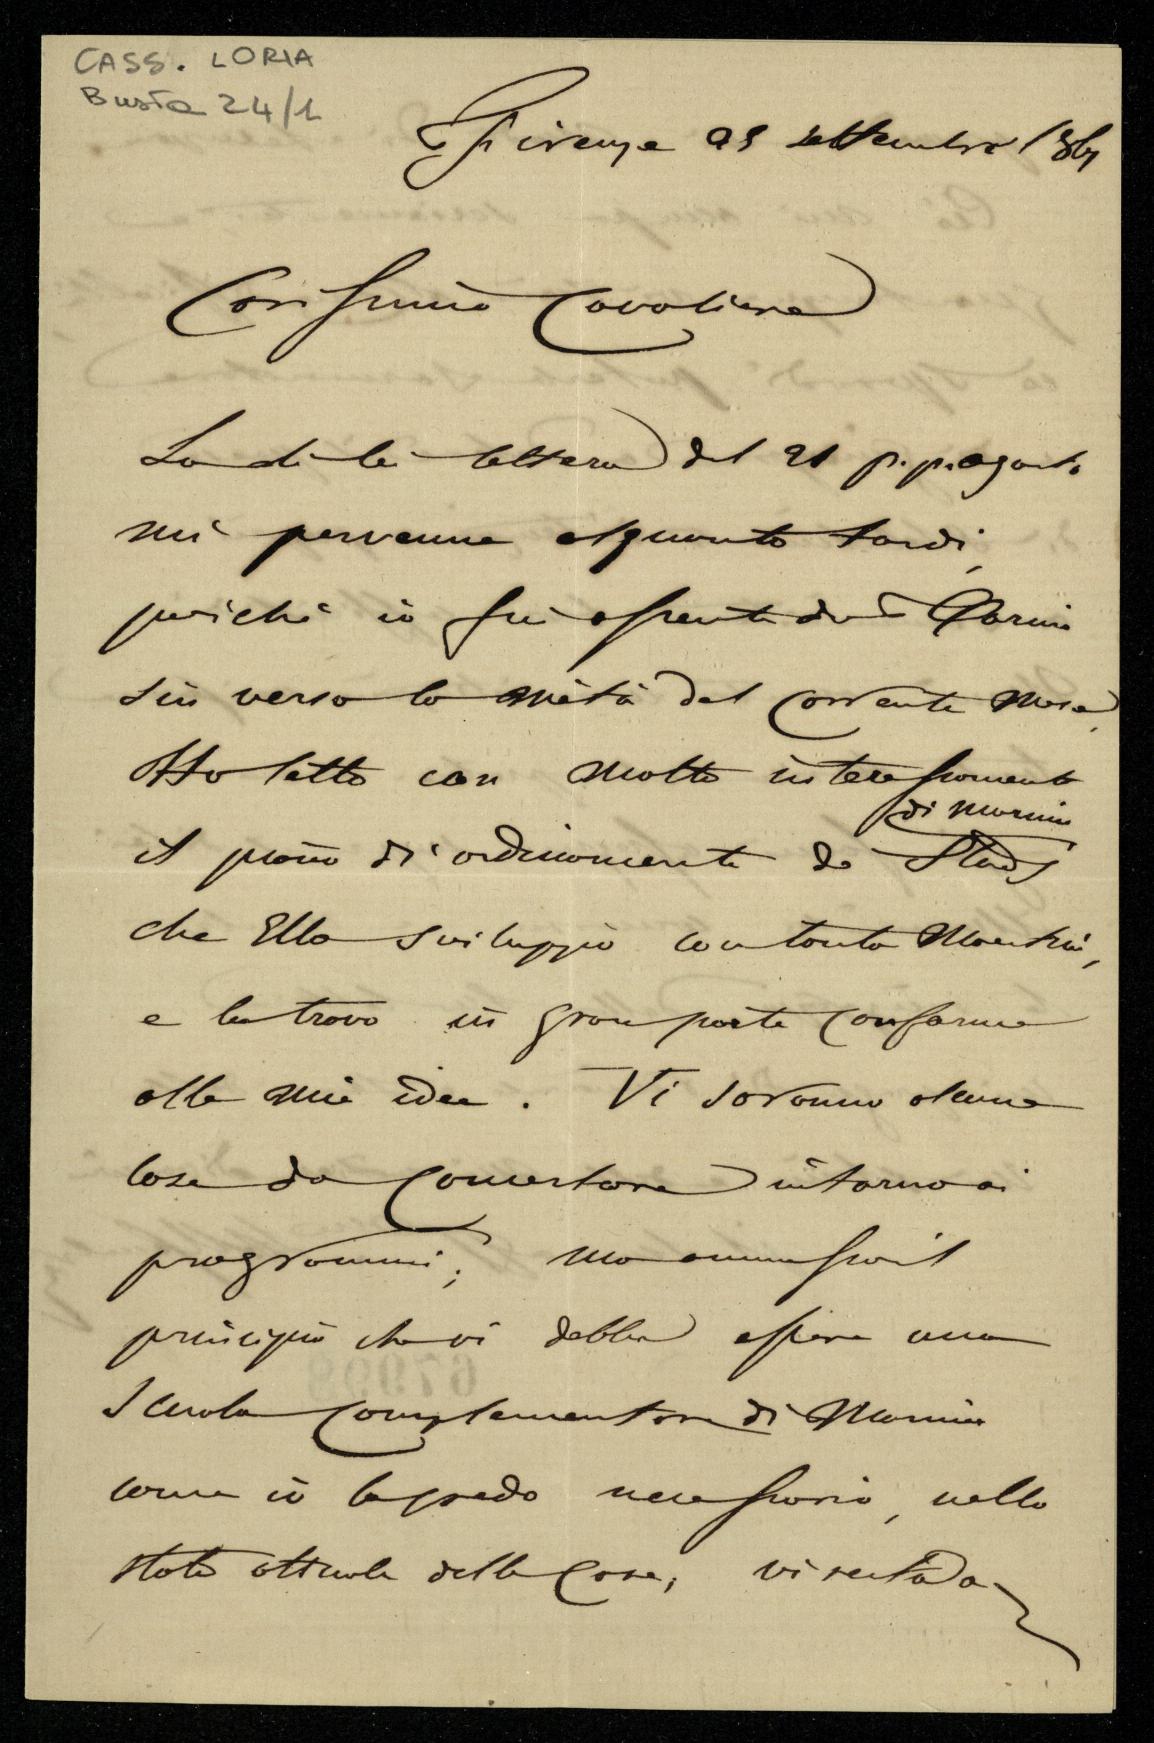 CASS. LORIA
Busta 24/1
Firenze 25 settembre 1867
Carissimo Cavaliere
La di lei lettera del 21 p.p. agosto
mi pervenne alquanto tardi,
perichè io fui assente da
sin verso la metà del corrente mese.
Ho letto con molto interessamento
di marina
il piano di ordinamento de Studj
che Ella sviluppò con tanta Maestria,
e lo trovo in gran parte conforme
alle mie idee. Vi saranno alcune
cose da concertare intorno ai
programmi; ma ammesso il
principio che vi debba essere una
Scuola Complementare di Marina
come io la credo necessaria, nello
stato attuale delle cose, vi sentada
67998